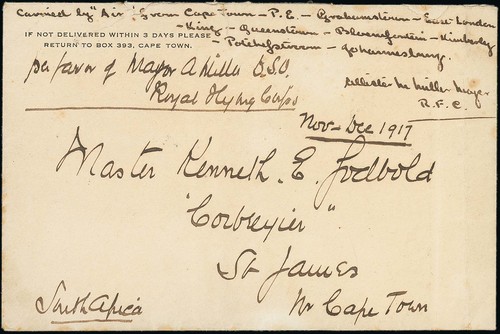 Carried by "Air" from Cape Town - P.E. - Grahamstown - East London
- King - Queenstown - Bloemfontein - Kimberley
- Potchefstroom - Johannesburg.
IF NOT DELIVERED WITHIN 3 DAYS PLEASE
RETURN TO BOX 393, CAPE TOWN.
per favor of Major A Miller D.S.O.
Royal Flying Corps
Allister M Miller Major
R.F.C.
Nov-Dec 1917
Master Kenneth. E. Godbold
St James
Nr Cape Town
South Africa